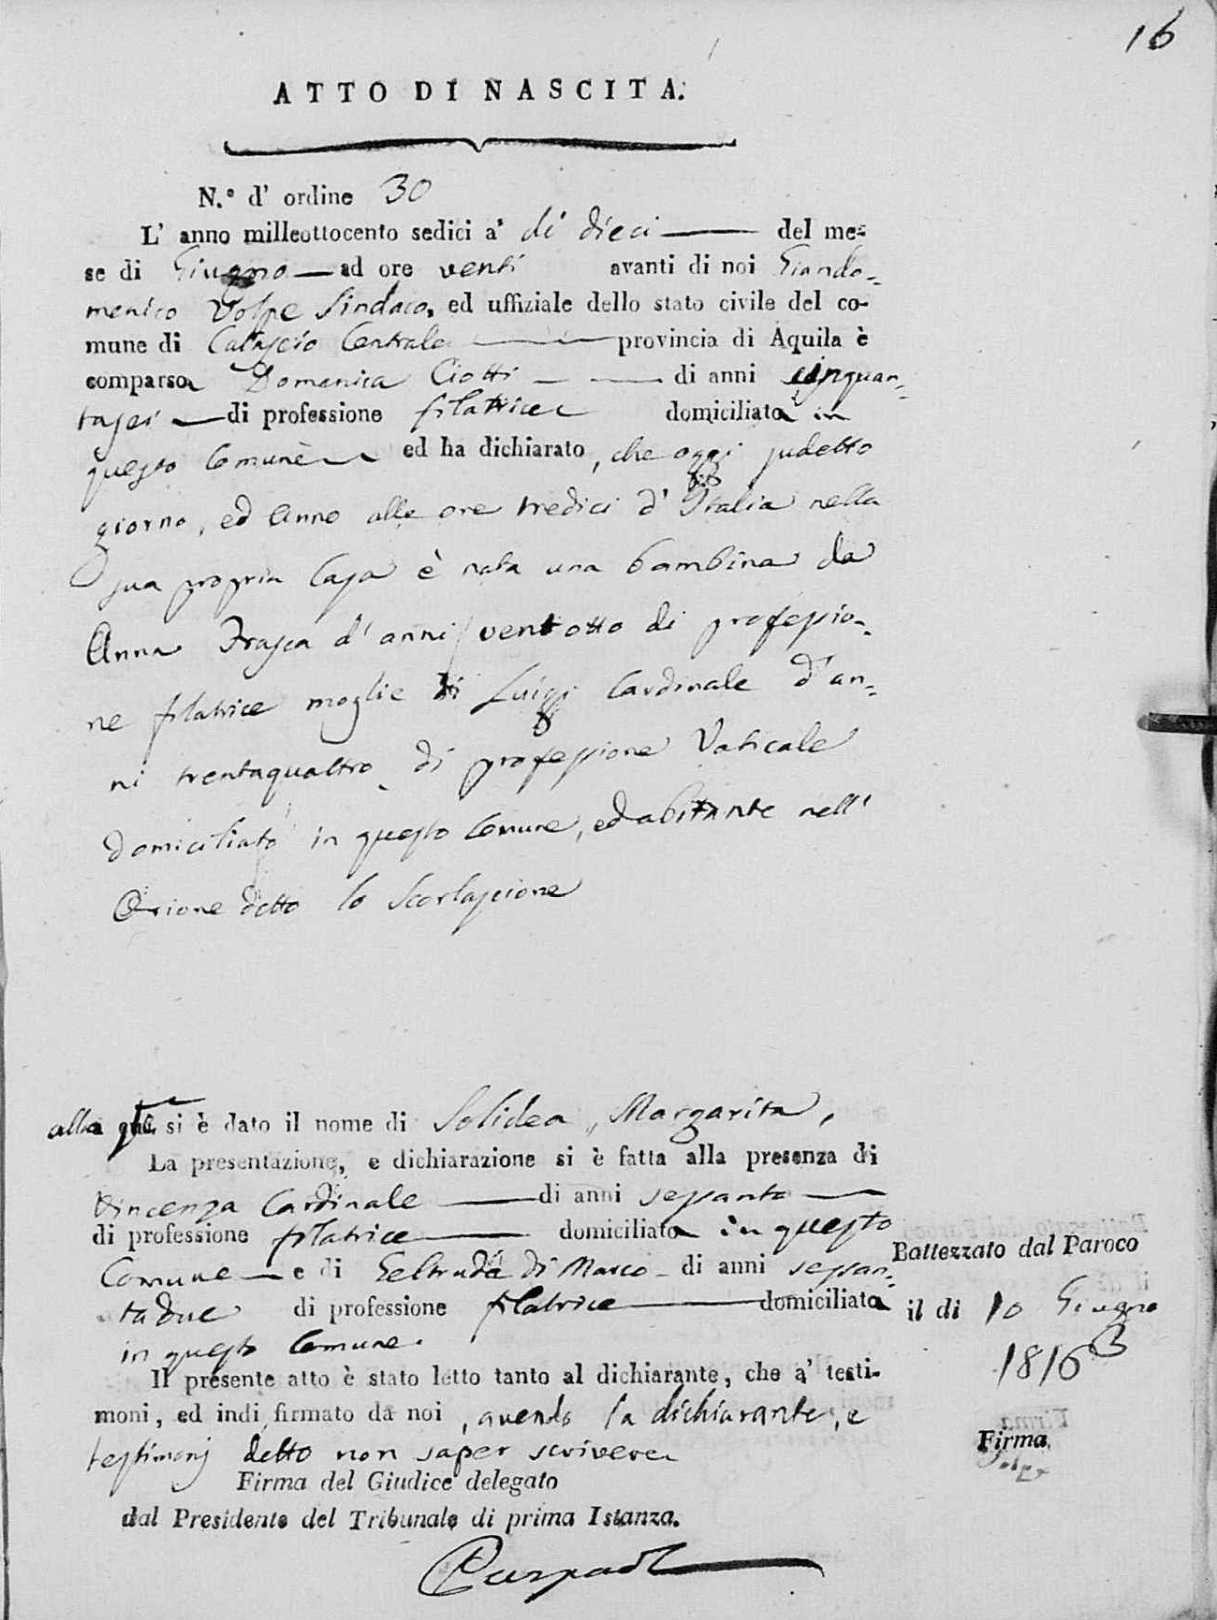 16
ATTO DI NASCITA.
N.º d' ordine 30
L' anno milleottocento sedici a' dì dieci del me-
se di Giugno ad ore venti avanti di noi Giando-
menico Volpe Sindaco, ed uffiziale dello stato civile del co-
mune di Calascio Centrale provincia di Aquila è
comparsa Domenica Ciotti di anni cinquan-
tasei di professione filatrice domiciliata in
questo Comune ed ha dichiarato, che oggi sudetto
giorno, ed Anno alle ore tredici d' Italia nella
sua propria Casa è nata una bambina da
Anna Frasca d' anni ventotto di professio-
ne filatrice moglie di Luigi Cardinale d' an-
ni trentaquattro di professione Vaticale
domiciliato in questo Comune, ed abitante nell'
detto lo
alla quale si è dato il nome di Solidea, Margarita,
La presentazione, e dichiarazione si è fatta alla presenza di
Vincenza Cardinale di anni sessanta
di professione filatrice domiciliata in questo
Comune e di Geltruda di Marco di anni sessan-
tadue di professione filatrice domiciliata
in questo Comune.
Il presente atto è stato letto tanto al dichiarante, che a' testi-
moni, ed indi firmato da noi, avendo la dichiarante, e
testimonj detto non saper scrivere
Firma del Giudice delegato
dal Presidente del Tribunale di prima Istanza.
Battezzato dal Paroco
il di 10 Giugno
1816
Firma